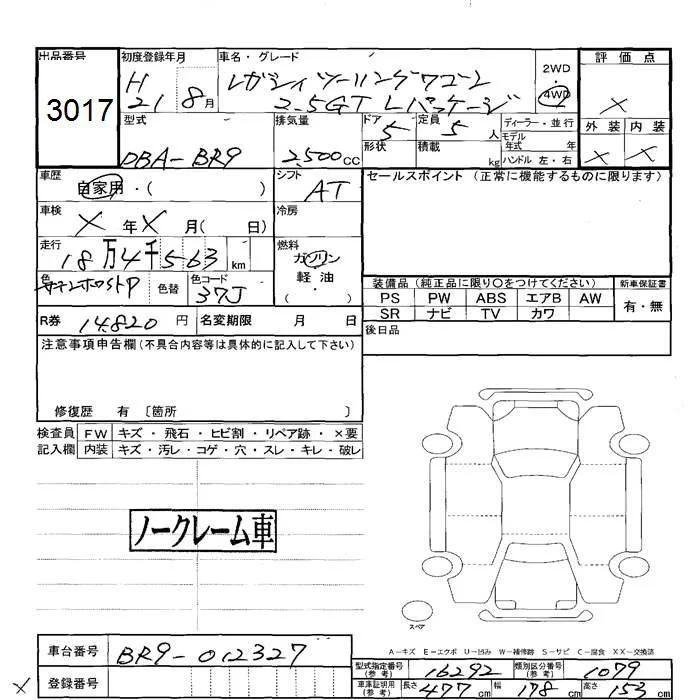 出品番号 初度登録年月 車名・グレード 評価点
3017
H 21 8月 レガシィツーリングワゴン 2WD・
2.5GT Lパッケージ 4WD ×
型式 排気量 ドア 定員 ディーラー・並行 外装 内装
DBA-BR9 2,500cc 5 5人 モデル年式 年 × ×
形状 積載 kg ハンドル 左・右
車歴 シフト セールスポイント (正常に機能するものに限ります)
自家用・( ) AT
車検 冷房
× 年 × 月( 日)
走行 燃料
18万4千563km ガソリン
軽油
( ・ )
色 色替 色コード 装備品 (純正品に限り○をつけてください) 新車保証書
37J PS PW ABS エアB AW 有・無
SR ナビ TV カワ
R券 14820円 名変期限 月 日 後日品
注意事項申告欄(不具合内容等は具体的に記入して下さい)
修復歴 有 〔箇所 〕
検査員 FW キズ・飛石・ヒビ割・リペア跡・×要
記入欄 内装 キズ・汚レ・コゲ・穴・スレ・キレ・破レ
ノークレーム車
スペア
A-キズ E-エクボ U-凹み W-補修跡 S-サビ C-腐食 XX-交換済
車台番号 BR9-012327 型式指定番号(参考) 16292 類別区分番号(参考) 1079
× 登録番号 車庫証明用(参考) 長さ 477cm 幅 178cm 高さ 153cm